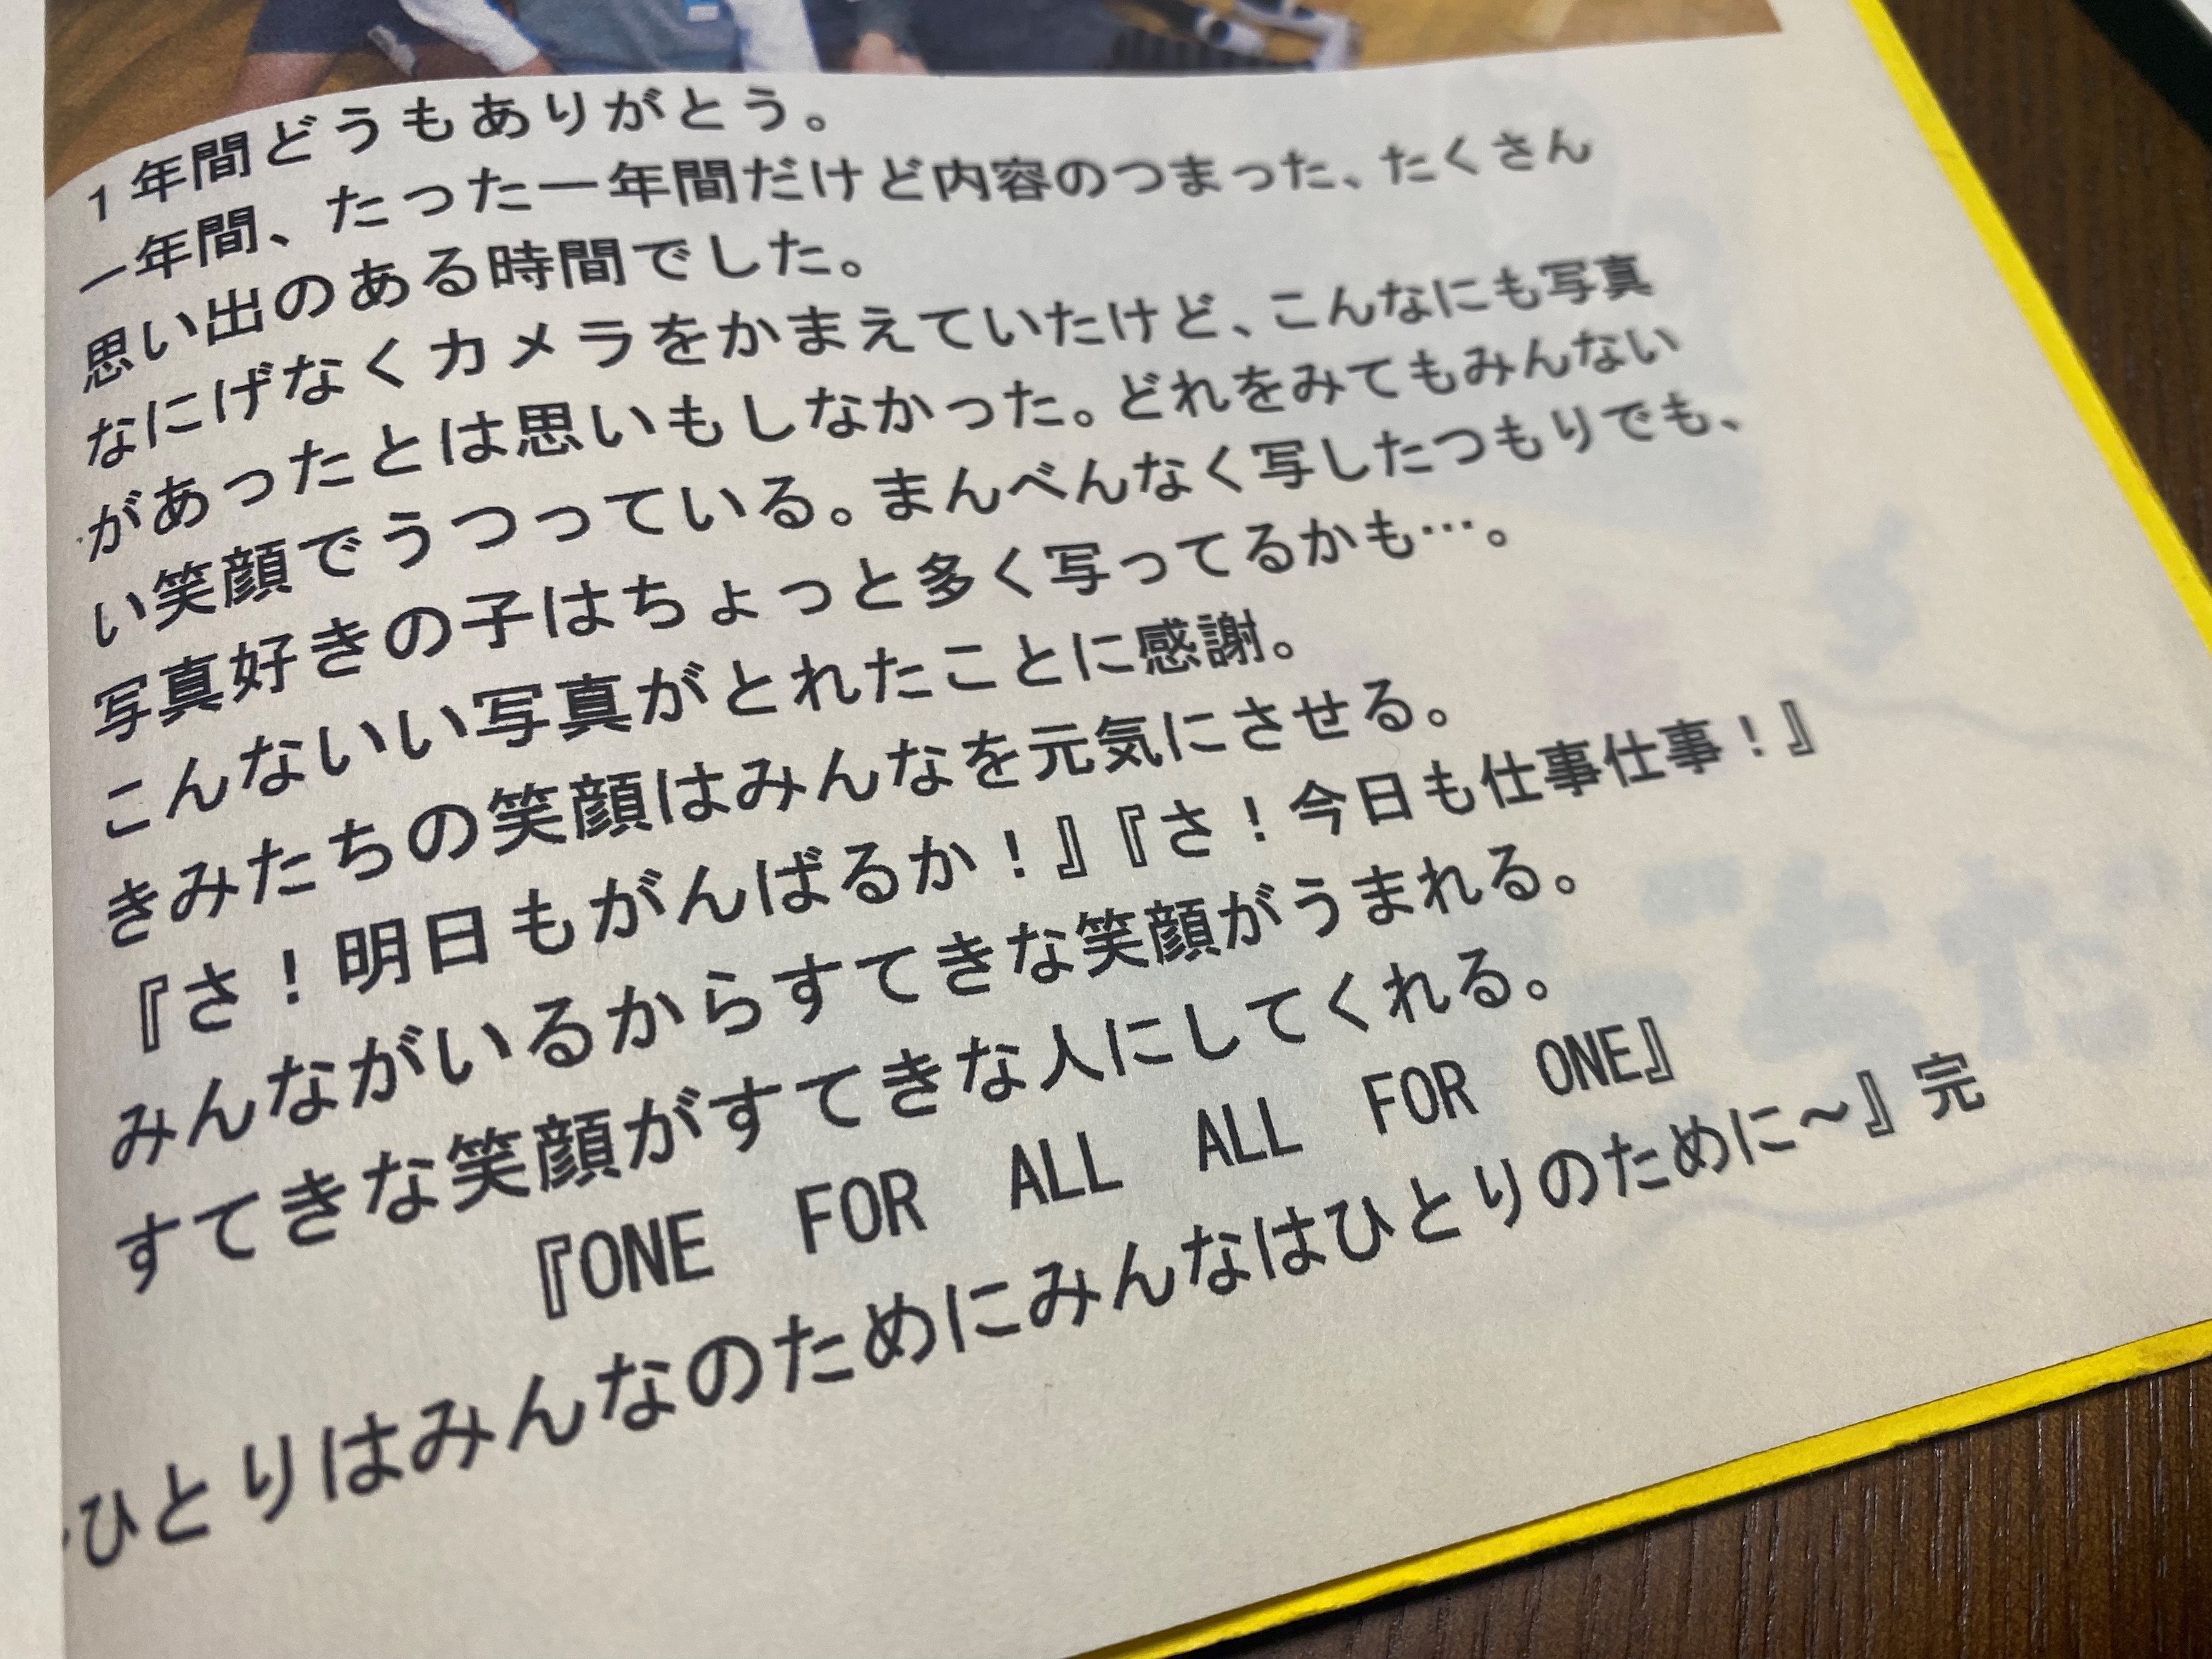 1年間どうもありがとう。
一年間、たった一年間だけど内容のつまった、たくさん
思い出のある時間でした。
なにげなくカメラをかまえていたけど、こんなにも写真
があったとは思いもしなかった。どれをみてもみんない
い笑顔でうつっている。まんべんなく写したつもりでも、
写真好きの子はちょっと多く写ってるかも…。
こんないい写真がとれたことに感謝。
きみたちの笑顔はみんなを元気にさせる。
『さ！明日もがんばるか！』『さ！今日も仕事仕事！』
みんながいるからすてきな笑顔がうまれる。
すてきな笑顔がすてきな人にしてくれる。
『ONE FOR ALL ALL FOR ONE』
ひとりはみんなのためにみんなはひとりのために～』完